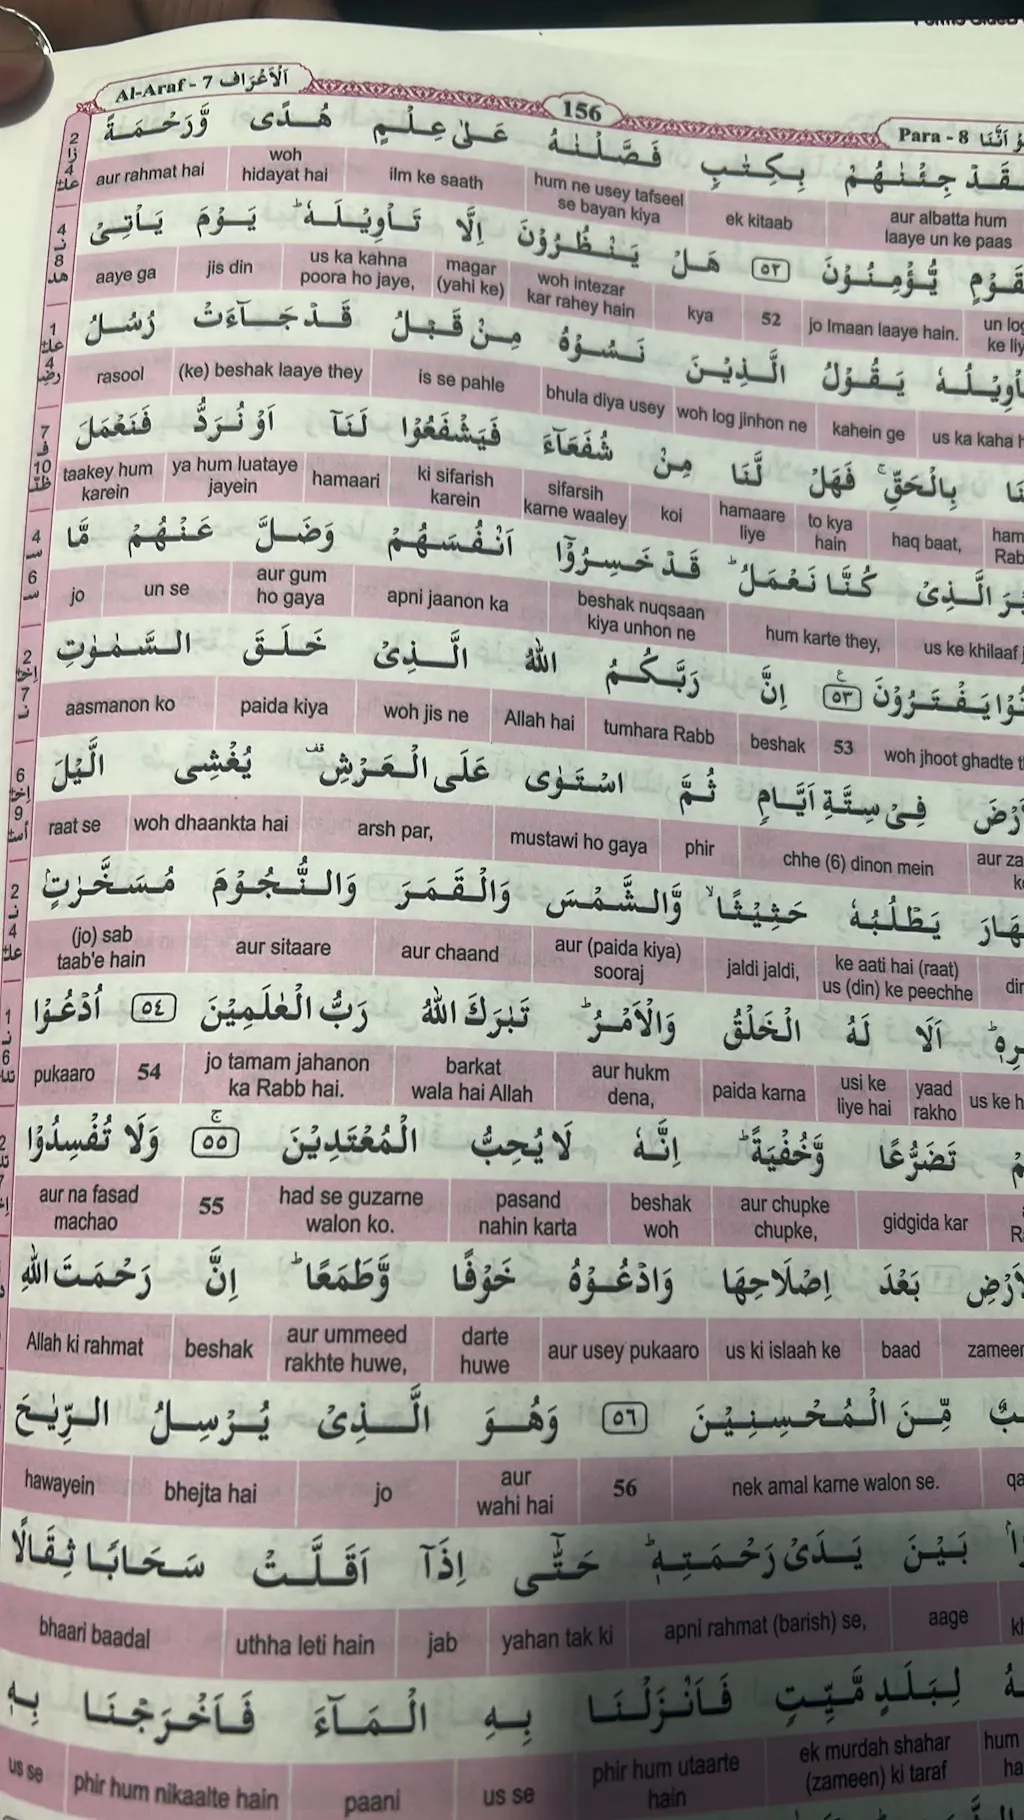 Al-Araf - 7 اَلْاَعْرَاف
156
Para - 8
جِئْنٰهُمْ بِكِتٰبٍ فَصَّلْنٰهُ عَلٰى عِلْمٍ هُدًى وَّرَحْمَةً
aur albatta hum laaye un ke paas ek kitaab hum ne usey tafseel se bayan kiya ilm ke saath woh hidayat hai aur rahmat hai
يُّؤْمِنُوْنَ ٥٢ هَلْ يَنْظُرُوْنَ اِلَّا تَاْوِيْلَهٗ ؕ يَوْمَ يَاْتِىْ
jo Imaan laaye hain. 52 kya woh intezar kar rahey hain magar (yahi ke) us ka kahna poora ho jaye, jis din aaye ga
يَقُوْلُ الَّذِيْنَ نَسُوْهُ مِنْ قَبْلُ قَدْ جَآءَتْ رُسُلُ
us ka kaha kahein ge woh log jinhon ne bhula diya usey is se pahle (ke) beshak laaye they rasool
بِالْحَقِّ ۚ فَهَلْ لَّنَا مِنْ شُفَعَآءَ فَيَشْفَعُوْا لَنَآ اَوْ نُرَدُّ فَنَعْمَلَ
haq baat, to kya hain hamaare liye koi sifarsih karne waaley ki sifarish karein hamaari ya hum luataye jayein taakey hum karein
الَّذِىْ كُنَّا نَعْمَلُ ؕ قَدْ خَسِرُوْٓا اَنْفُسَهُمْ وَضَلَّ عَنْهُمْ مَّا
us ke khilaaf hum karte they, beshak nuqsaan kiya unhon ne apni jaanon ka aur gum ho gaya un se jo
يَفْتَرُوْنَ ٥٣ اِنَّ رَبَّكُمُ اللّٰهُ الَّذِىْ خَلَقَ السَّمٰوٰتِ
woh jhoot ghadte 53 beshak tumhara Rabb Allah hai woh jis ne paida kiya aasmanon ko
فِىْ سِتَّةِ اَيَّامٍ ثُمَّ اسْتَوٰى عَلَى الْعَرْشِ يُغْشِى الَّيْلَ
chhe (6) dinon mein phir mustawi ho gaya arsh par, woh dhaankta hai raat se
يَطْلُبُهٗ حَثِيْثًا ۙ وَّالشَّمْسَ وَالْقَمَرَ وَالنُّجُوْمَ مُسَخَّرٰتٍ
ke aati hai (raat) us (din) ke peechhe jaldi jaldi, aur (paida kiya) sooraj aur chaand aur sitaare (jo) sab taab'e hain
اَلَا لَهُ الْخَلْقُ وَالْاَمْرُ ؕ تَبٰرَكَ اللّٰهُ رَبُّ الْعٰلَمِيْنَ ٥٤ اُدْعُوْا
us ke yaad rakho usi ke liye hai paida karna aur hukm dena, barkat wala hai Allah jo tamam jahanon ka Rabb hai. 54 pukaaro
تَضَرُّعًا وَّخُفْيَةً ؕ اِنَّهٗ لَا يُحِبُّ الْمُعْتَدِيْنَ ٥٥ وَلَا تُفْسِدُوْا
gidgida kar aur chupke chupke, beshak woh pasand nahin karta had se guzarne walon ko. 55 aur na fasad machao
بَعْدَ اِصْلَاحِهَا وَادْعُوْهُ خَوْفًا وَّطَمَعًا ؕ اِنَّ رَحْمَتَ اللّٰهِ
baad us ki islaah ke aur usey pukaaro darte huwe aur ummeed rakhte huwe, beshak Allah ki rahmat
مِّنَ الْمُحْسِنِيْنَ ٥٦ وَهُوَ الَّذِىْ يُرْسِلُ الرِّيٰحَ
nek amal karne walon se. 56 aur wahi hai jo bhejta hai hawayein
بَيْنَ يَدَىْ رَحْمَتِهٖ ؕ حَتّٰٓى اِذَآ اَقَلَّتْ سَحَابًا ثِقَالًا
aage apni rahmat (barish) se, yahan tak ki jab uthha leti hain bhaari baadal
لِبَلَدٍ مَّيِّتٍ فَاَنْزَلْنَا بِهِ الْمَآءَ فَاَخْرَجْنَا بِهٖ
hum ek murdah shahar (zameen) ki taraf phir hum utaarte hain us se paani phir hum nikaalte hain us se